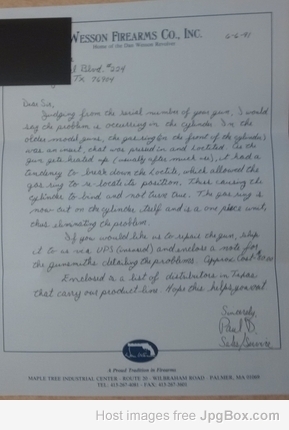 Wesson Firearms Co., Inc.
Home of the Dan Wesson Revolver
6-6-91
Blvd. #224
TX 76904
Dear Sir,
Judging from the serial number of your gun, I would
say the problem is occurring in the cylinder. In the
older model guns, the gas ring (on the front of the cylinder)
was an insert, that was pressed in and loctited. As the
gun gets heated up (usually after much use), it had a
tendency to break down the loctite, which allowed the
gas ring to re-locate its position. Thus causing the
cylinder to bind and not turn true. The gas ring is
now cut on the cylinder itself and is a one piece unit,
thus eliminating the problem.
If you would like us to repair the gun, ship
it to us via UPS (insured) and enclose a note for
the gunsmiths detailing the problems. Approx. Cost
Enclosed is a list of distributors in Texas
that carry our product line. Hope this helps you out.
Sincerely,
Paul D.
Sales/Service
Dan Wesson
A Proud Tradition in Firearms
MAPLE TREE INDUSTRIAL CENTER · ROUTE 20 · WILBRAHAM ROAD · PALMER, MA 01069
TEL: 413-267-4081 · FAX: 413-267-3601
Host images free JpgBox.com